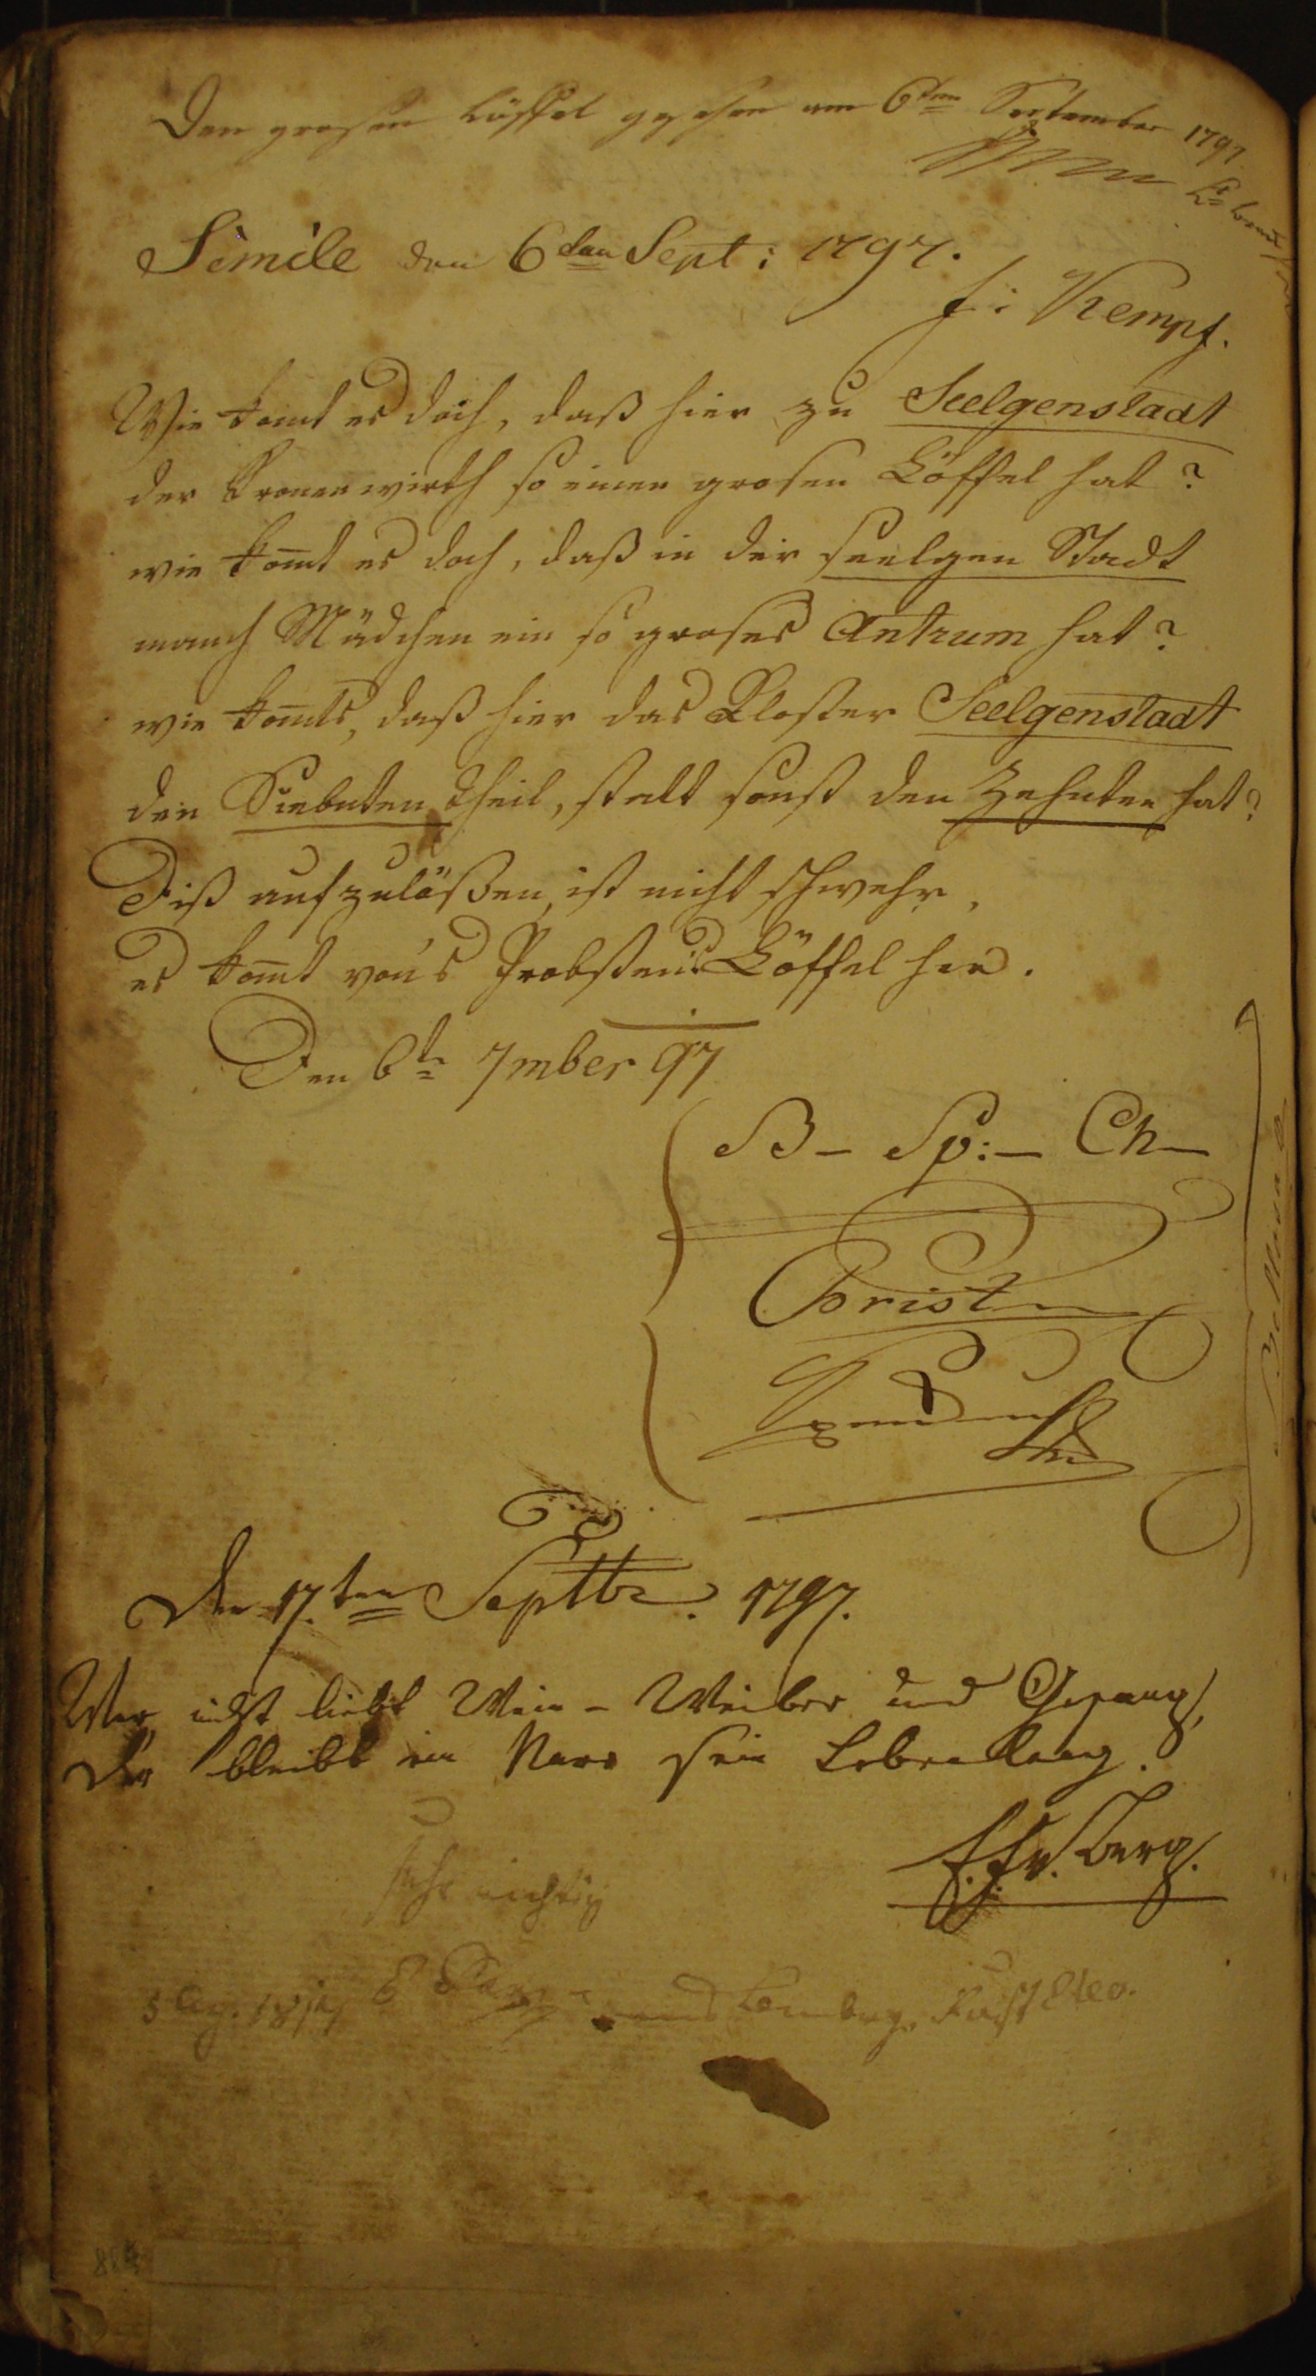 Den grosen Löffel gesehen am 6ten September 1797
Simile den 6ten Sept: 1797.
f: Kempf.
Wie komt es doch, daß hier zu Seelgenstadt
der Kronenwirth so einen grosen Löffel hat?
wie kom̄t es doch, daß in der seelgen Stadt
manch Mädchen ein so groses Antrum hat?
wie kom̄ts, daß hier das Kloster Seelgenstadt
den Siebnten Theil, statt sonst den Zehnten hat?
Diß aufzulößen, ist nicht schwehr,
es kom̄t von's Probsten's Löffel her.
Den 6tn 7mber 97
B - Sp: - Ch -
Christ
Den 17.ten Septbr. 1797.
Wer nicht liebt Wein - Weiber und Gesang,
Der bleibt ein Narr sein Lebenlang.
sehr richtig
Berg.